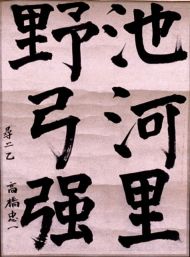 池河里
野弓强
尋二乙
高橋忠一